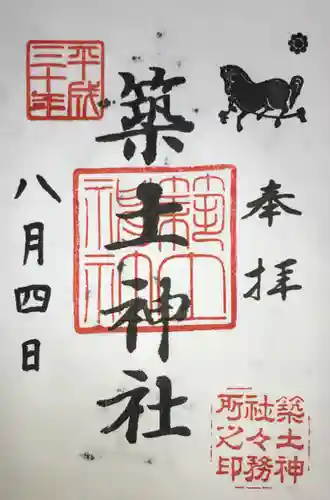 奉拝
築土神社
平成三十年
八月四日
築土神
社々務
所之印